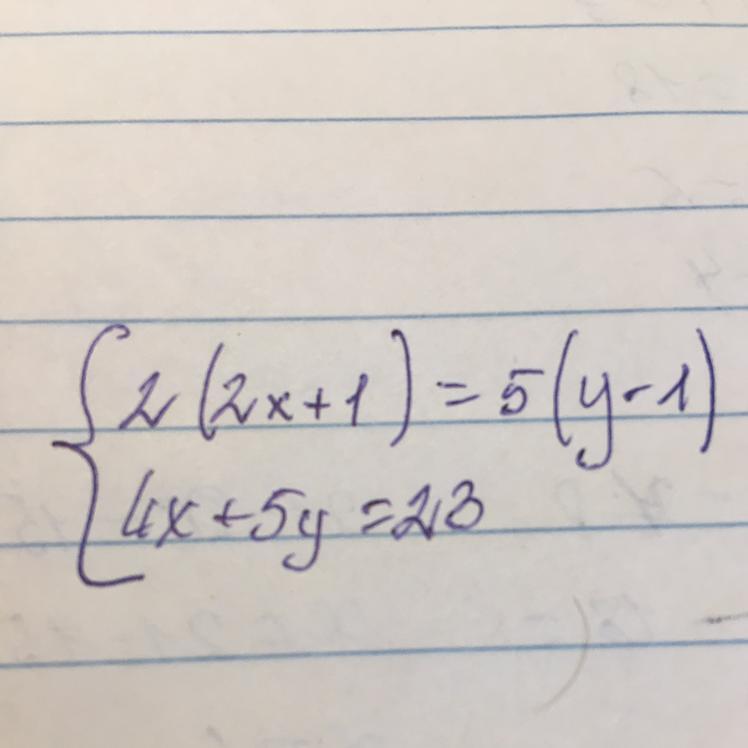 2(2x+1)=5(y-1)
4x+5y=23